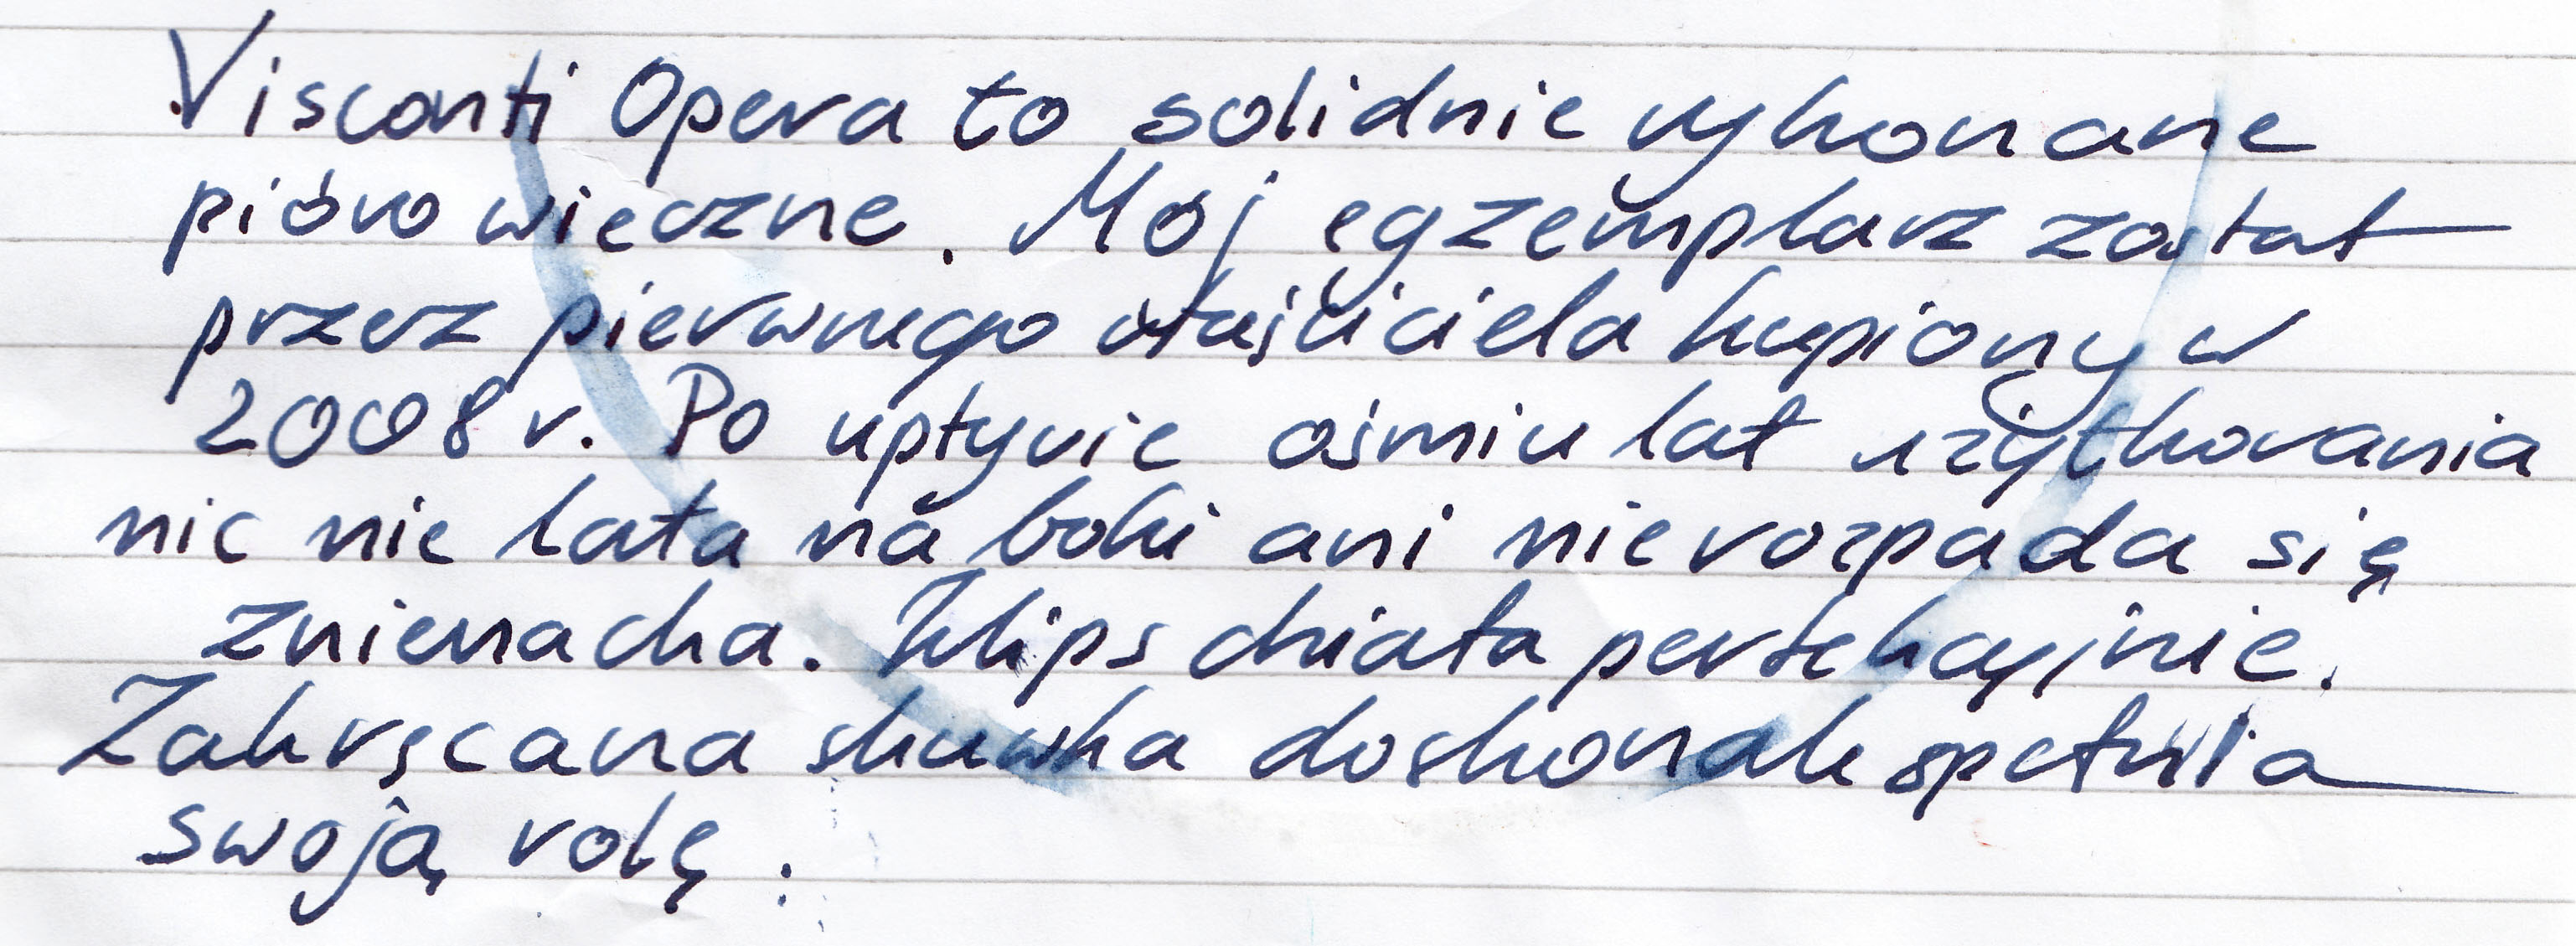 Visconti Opera to solidnie wykonane
pióro wieczne. Mój egzemplarz został
przez pierwnego właściciela kupiony w
2008 r. Po upływie ośmiu lat użytkowania
nic nie lata na boki ani nie rozpada się
znienacka. Klips działa perfekcyjnie.
Zakręcana skuwka doskonale spełnia
swoją rolę.